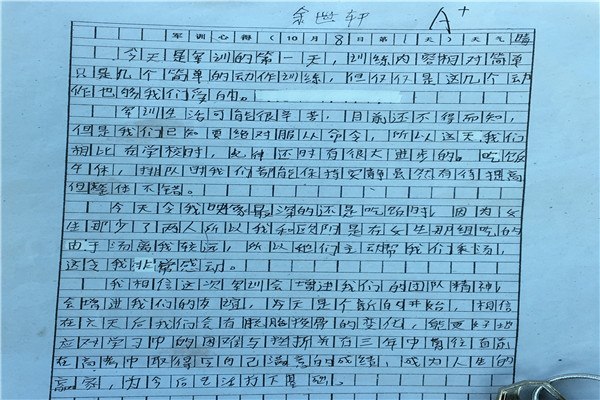 余世轩 A+
军训心得（10月8日第1天）天气晴
今天是军训的第一天，训练内容相对简单
只是几个简单的动作训练，但仅仅是这几个动
作也够我们受的。
军训生活可能很辛苦，目前还不得而知，
但是我们已知要绝对服从命令，所以这天我们
相比在学校时，精神还时有很大进步的。吃饭
午休，排队时我们都能保持安静虽然有待提高
但整体不错。
今天令我印象最深的还是吃饭时，因为女
生那少了两人所以我和同学是在女生那组吃的
由于汤离我较远，所以她们主动帮我们乘汤，
这令我非常感动。
我相信这次军训会增进我们的团队精神，
会增进我们的友谊，今天是个新的开始，相信
在六天后我们会有脱胎换骨的变化，能更好地
应对学习中的困难与挫折并在三年中勇往直前
在高考中取得令自己满意的成绩，成为人生的
赢家，为今后生活打下基础。